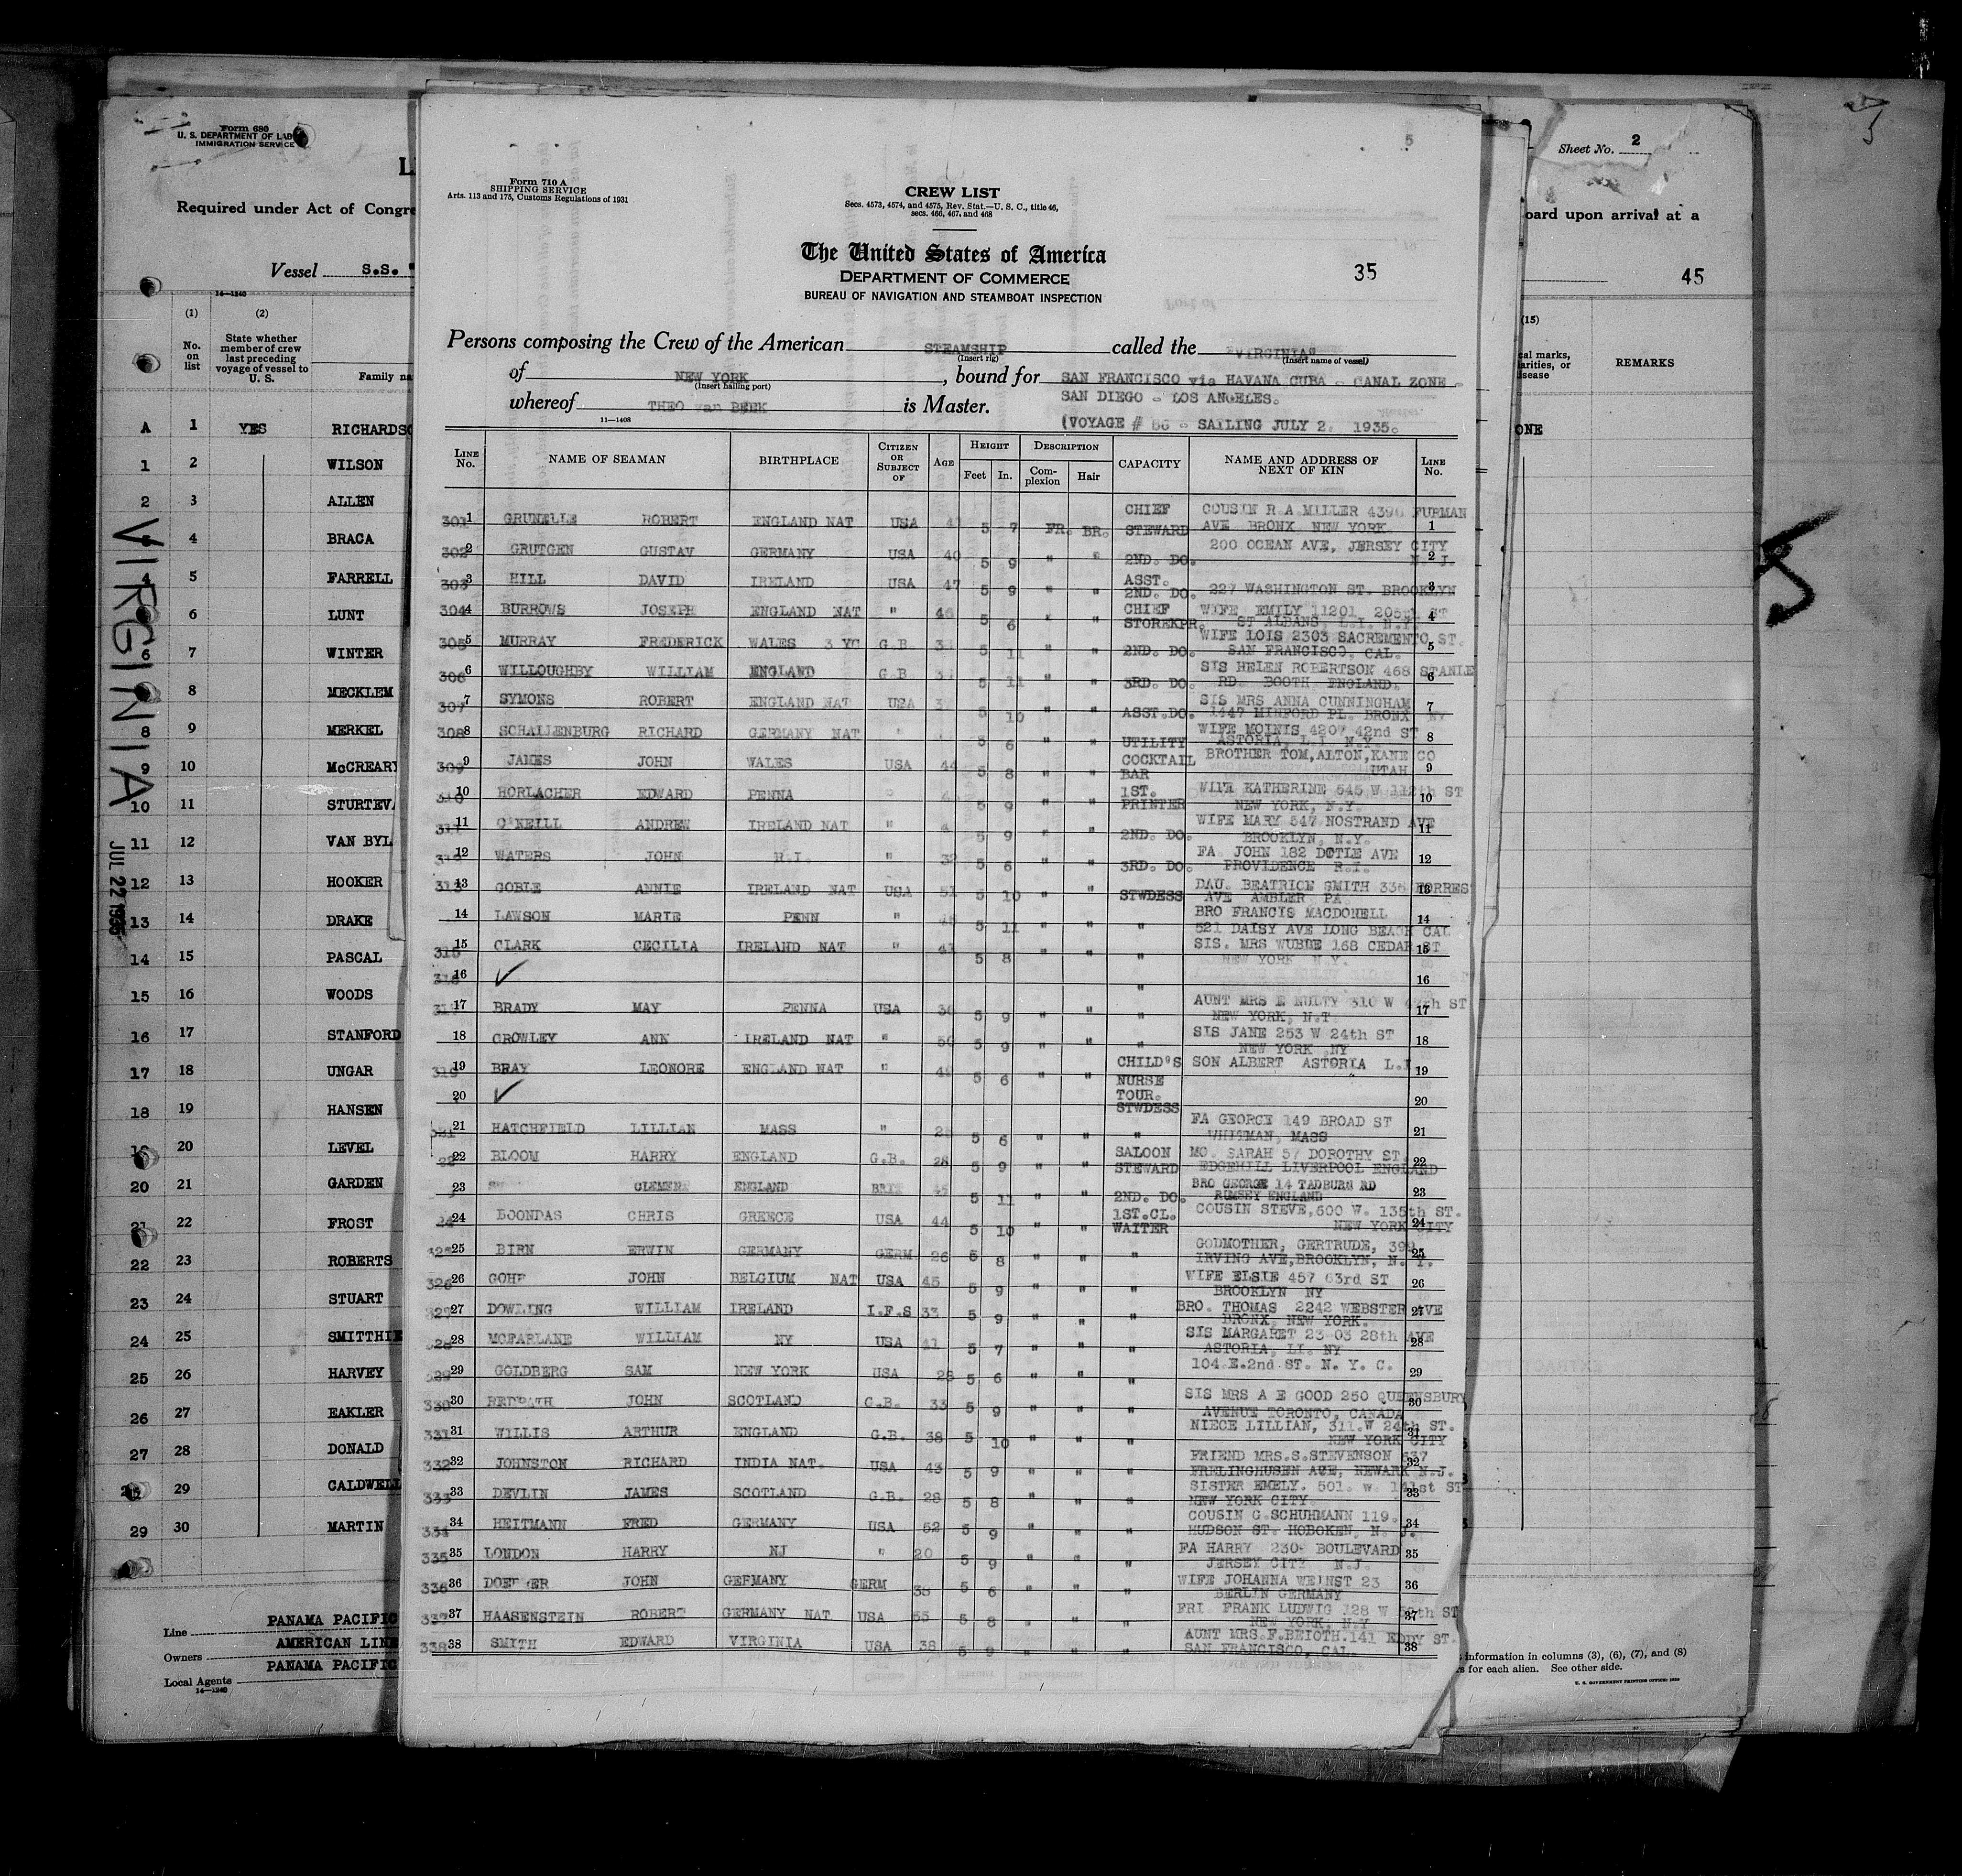 Form 680
U. S. DEPARTMENT OF LAB
IMMIGRATION SERVICE
Required under Act of Congre
Vessel S.S.
14-1240
(1) (2)
No. on list
State whether member of crew last preceding voyage of vessel to U. S.
Family na
A 1 YES RICHARDSO
1 2 WILSON
2 3 ALLEN
4 BRACA
4 5 FARRELL
6 LUNT
6 7 WINTER
8 MECKLEM
8 9 MERKEL
9 10 McCREARY
10 11 STURTEV
11 12 VAN BYL
12 13 HOOKER
13 14 DRAKE
14 15 PASCAL
15 16 WOODS
16 17 STANFORD
17 18 UNGAR
18 19 HANSEN
20 LEVEL
20 21 GARDEN
21 22 FROST
22 23 ROBERTS
23 24 STUART
24 25 SMITTHIE
25 26 HARVEY
26 27 EAKLER
27 28 DONALD
29 CALDWELL
29 30 MARTIN
Line PANAMA PACIFIC
Owners AMERICAN LINE
Local Agents PANAMA PACIFIC
14-1240
VIRGINIA
JUL 22 1935
5
Form 710 A
SHIPPING SERVICE
Arts. 113 and 175, Customs Regulations of 1931
CREW LIST
Secs. 4573, 4574, and 4575, Rev. Stat.—U. S. C., title 46,
secs. 466, 467, and 468
The United States of America
DEPARTMENT OF COMMERCE
BUREAU OF NAVIGATION AND STEAMBOAT INSPECTION
35
Persons composing the Crew of the American STEAMSHIP called the "VIRGINIA"
(Insert rig) (Insert name of vessel)
of NEW YORK, bound for SAN FRANCISCO via HAVANA CUBA - CANAL ZONE -
(Insert hailing port)
SAN DIEGO - LOS ANGELES.
whereof THEO van BEEK is Master.
11-1408
(VOYAGE # SAILING JULY 2. 1935.
LINE No. NAME OF SEAMAN BIRTHPLACE CITIZEN OR SUBJECT OF AGE HEIGHT Feet In. DESCRIPTION Complexion Hair CAPACITY NAME AND ADDRESS OF NEXT OF KIN LINE No.
301 1 GRUNELLE ROBERT ENGLAND NAT USA 5 7 FR. BR. CHIEF STEWARD COUSIN R A MILLER 4396 FURMAN AVE BRONX NEW YORK 1
302 2 GRUTGEN GUSTAV GERMANY USA 40 5 9 " " 2ND. DO. 200 OCEAN AVE, JERSEY CITY N. J. 2
303 3 HILL DAVID IRELAND USA 47 5 9 " " ASST. 2ND. DO. 227 WASHINGTON ST. BROOKLYN 3
304 4 BURROWS JOSEPH ENGLAND NAT " 46 5 6 " " CHIEF STOREKPR. WIFE EMILY 11201 205th ST ST ALBANS, L.I. N.Y. 4
305 5 MURRAY FREDERICK WALES 3 YC G.B. 5 11 " " 2ND. DO. WIFE LOIS 2303 SACREMENTO ST. SAN FRANCISCO. CAL. 5
306 6 WILLOUGHBY WILLIAM ENGLAND G.B. 5 11 " " 3RD. DO. SIS HELEN ROBERTSON 468 STANLE RD. BOOTH ENGLAND. 6
307 7 SYMONS ROBERT ENGLAND NAT USA 5 10 " " ASST.DO. SIS MRS ANNA CUNNINGHAM 1447 MINFORD PL. BRONX NY 7
308 8 SCHALLENBURG RICHARD GERMANY NAT " 5 6 " " UTILITY WIFE MOINIS 4207 42nd ST ASTORIA, L.I. N.Y. 8
309 9 JAMES JOHN WALES USA 44 5 8 " " COCKTAIL BAR BROTHER TOM,ALTON,KANE CO UTAH 9
310 10 HORLACHER EDWARD PENNA " 5 9 " " 1ST. PRINTER WIFE KATHERINE 545 W 112th ST NEW YORK, N.Y. 10
311 11 O'NEILL ANDREW IRELAND NAT " 5 9 " " 2ND. DO. WIFE MARY 547 NOSTRAND AVE BROOKLYN, N.Y. 11
312 12 WATERS JOHN R.I. " 32 5 6 " " 3RD. DO. FA. JOHN 182 AVE PROVIDENCE R.I. 12
313 13 GOBLE ANNIE IRELAND NAT USA 51 5 10 " " STWDESS DAU. BEATRICE SMITH 336 FORRES AVE AMBLER PA. 13
14 LAWSON MARIE PENN " 5 11 " " " BRO FRANCIS MACDONELL 521 DAISY AVE LONG BEACH CAL 14
315 15 CLARK CECILIA IRELAND NAT " 41 5 8 " SIS. MRS WUBDE 168 CEDAR ST NEW YORK N.Y. 15
316 16 ✓ " 16
317 17 BRADY MAY PENNA USA 30 5 9 " " " AUNT MRS E NULTY 310 W ST NEW YORK, N.Y 17
18 CROWLEY ANN IRELAND NAT " 50 5 9 " " " SIS JANE 253 W 24th ST NEW YORK NY 18
319 19 BRAY LEONORE ENGLAND NAT " 5 6 " " CHILD'S NURSE SON ALBERT ASTORIA L.I 19
20 ✓ TOUR. STWDESS 20
321 21 HATCHFIELD LILLIAN MASS " 5 6 " " " FA GEORGE 149 BROAD ST WHITMAN, MASS 21
22 BLOOM HARRY ENGLAND G.B. 28 5 9 " " SALOON STEWARD MO. SARAH 57 DOROTHY ST. EDGEHILL LIVERPOOL ENGLAND 22
23 CLEMENT ENGLAND BRIT 45 5 11 " " 2ND. DO. BRO GEORGE 14 TADBURN RD RUMSEY ENGLAND 23
24 BOONDAS CHRIS GREECE USA 44 5 10 " " 1ST.CL. WAITER COUSIN STEVE,600 W. 135th ST. NEW YORK CITY 24
325 25 BIRN ERWIN GERMANY GERM 26 5 8 " " " GODMOTHER, GERTRUDE, IRVING AVE,BROOKLYN, N. Y. 25
326 26 JOHN BELGIUM NAT USA 45 5 9 " " " WIFE ELSIE 457 63rd ST BROOKLYN NY 26
327 27 DOWLING WILLIAM IRELAND I.F.S 33 5 9 " " " BRO. THOMAS 2242 WEBSTER AVE BRONX, NEW YORK. 27
328 28 MCFARLANE WILLIAM NY USA 41 5 7 " " " SIS MARGARET 23 03 28th AVE ASTORIA, LI. NY 28
329 29 GOLDBERG SAM NEW YORK USA 26 5 6 " " " 104 E.2nd ST. N. Y. C. 29
330 30 REDPATH JOHN SCOTLAND G.B. 33 5 9 " " " SIS MRS A E GOOD 250 QUEENSBURY AVENUE TORONTO, CANADA 30
331 31 WILLIS ARTHUR ENGLAND G.B. 38 5 10 " " " NIECE LILLIAN, 311.W 24th ST. NEW YORK CITY 31
332 32 JOHNSTON RICHARD INDIA NAT. USA 43 5 9 " " " FRIEND MRS.S.STEVENSON 637 FRELINGHUSEN AVE, NEWARK N.J. 32
333 33 DEVLIN JAMES SCOTLAND G.B. 28 5 8 " " " SISTER EMELY. 501. w. 141st ST NEW YORK CITY. 33
334 34 HEITMANN FRED GERMANY USA 52 5 9 " " " COUSIN G.SCHUHMANN 119. HUDSON ST. HOBOKEN, N. J. 34
335 35 LONDON HARRY NJ " 20 5 9 " " " FA HARRY BOULEVARD JERSEY CITY N.J. 35
336 36 JOHN GERMANY GERM 35 5 6 " " " WIFE JOHANNA WEINST 23 BERLIN GERMANY 36
337 37 HAASENSTEIN ROBERT GERMANY NAT USA 55 5 8 " " " FRI FRANK LUDWIG 128 W ST NEW YORK, N.Y 37
338 38 SMITH EDWARD VIRGINIA USA 38 5 9 " " " AUNT MRS.F.BEIOTH.141 EDDY ST. SAN FRANCISCO, CAL. 38
Sheet No. 2
oard upon arrival at a
45
(15)
cal marks,
arities, or
sease
REMARKS
ONE
information in columns (3), (6), (7), and (8)
s for each alien. See other side.
U. S. GOVERNMENT PRINTING OFFICE: 1930